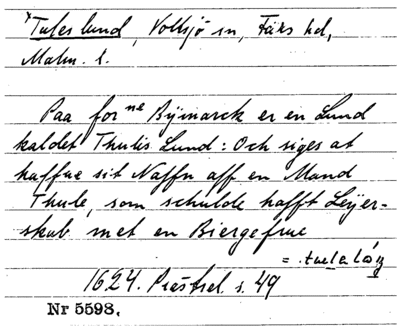 *Tules lund, Vollsjö sn, Färs hd,
Malm. l.
Paa for ne Bymarck er en Lund
kaldet Thulis Lund: Och siges at
haffue sit Naffn aff en Mand
Thule, som schulde hafft Leyer-
skab met en Biergefrue
1624. Præstrel. s. 49
Nr 5598.